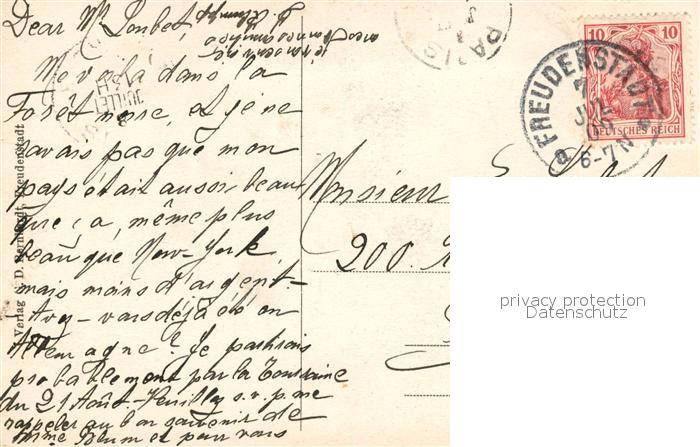 Dear Mr Loubet,
Me voilà dans la
Forêt noire, et je ne
savais pas que mon
pays était aussi beau
que ça, même plus
beau que New-York,
mais moins d'argent-
Avez-vous déjà été en
Allemagne? Je partirais
probablement par la Touraine
du 21 Août- Veuillez s.v.p. me
rappeler au bon souvenir de
Mme Blum et pour vous
Monsieur
200.
Verlag v. D. Bernstadt, Freudenstadt.
PARIS
JUILLET
10 10
DEUTSCHES REICH
FREUDENSTADT
7 JUL
6-7 N
privacy protection
Datenschutz